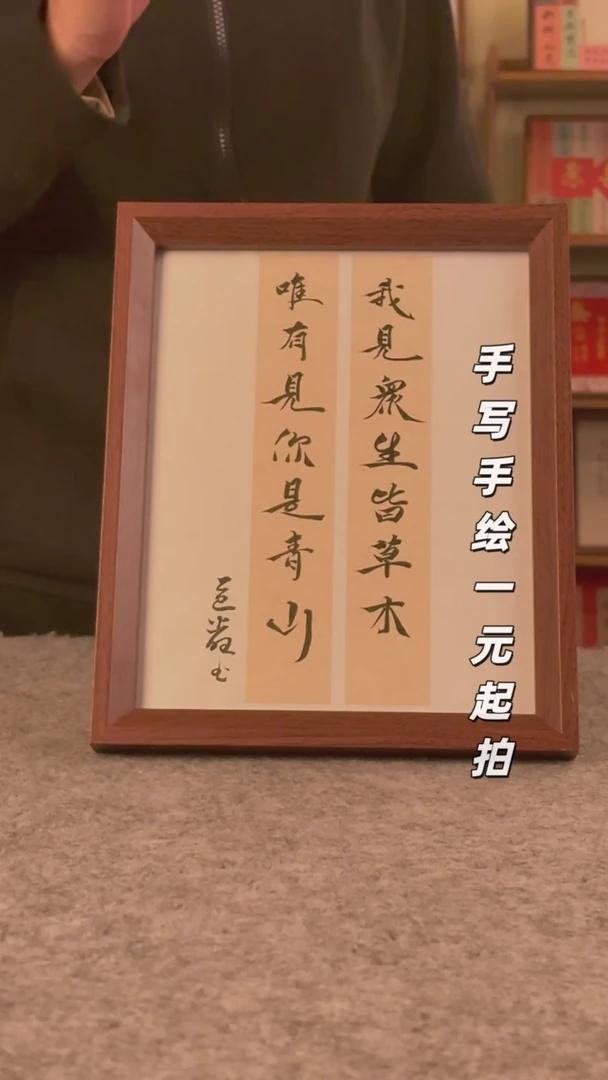 我見衆生皆草木
唯有見你是青山
手写手绘一元起拍